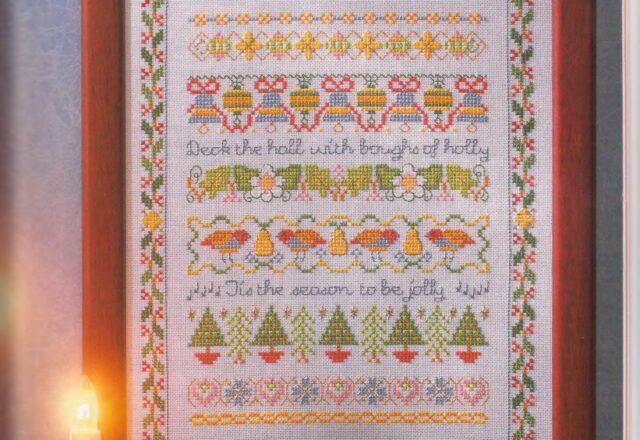 Deck the hall with boughs of holly
'Tis the season to be jolly